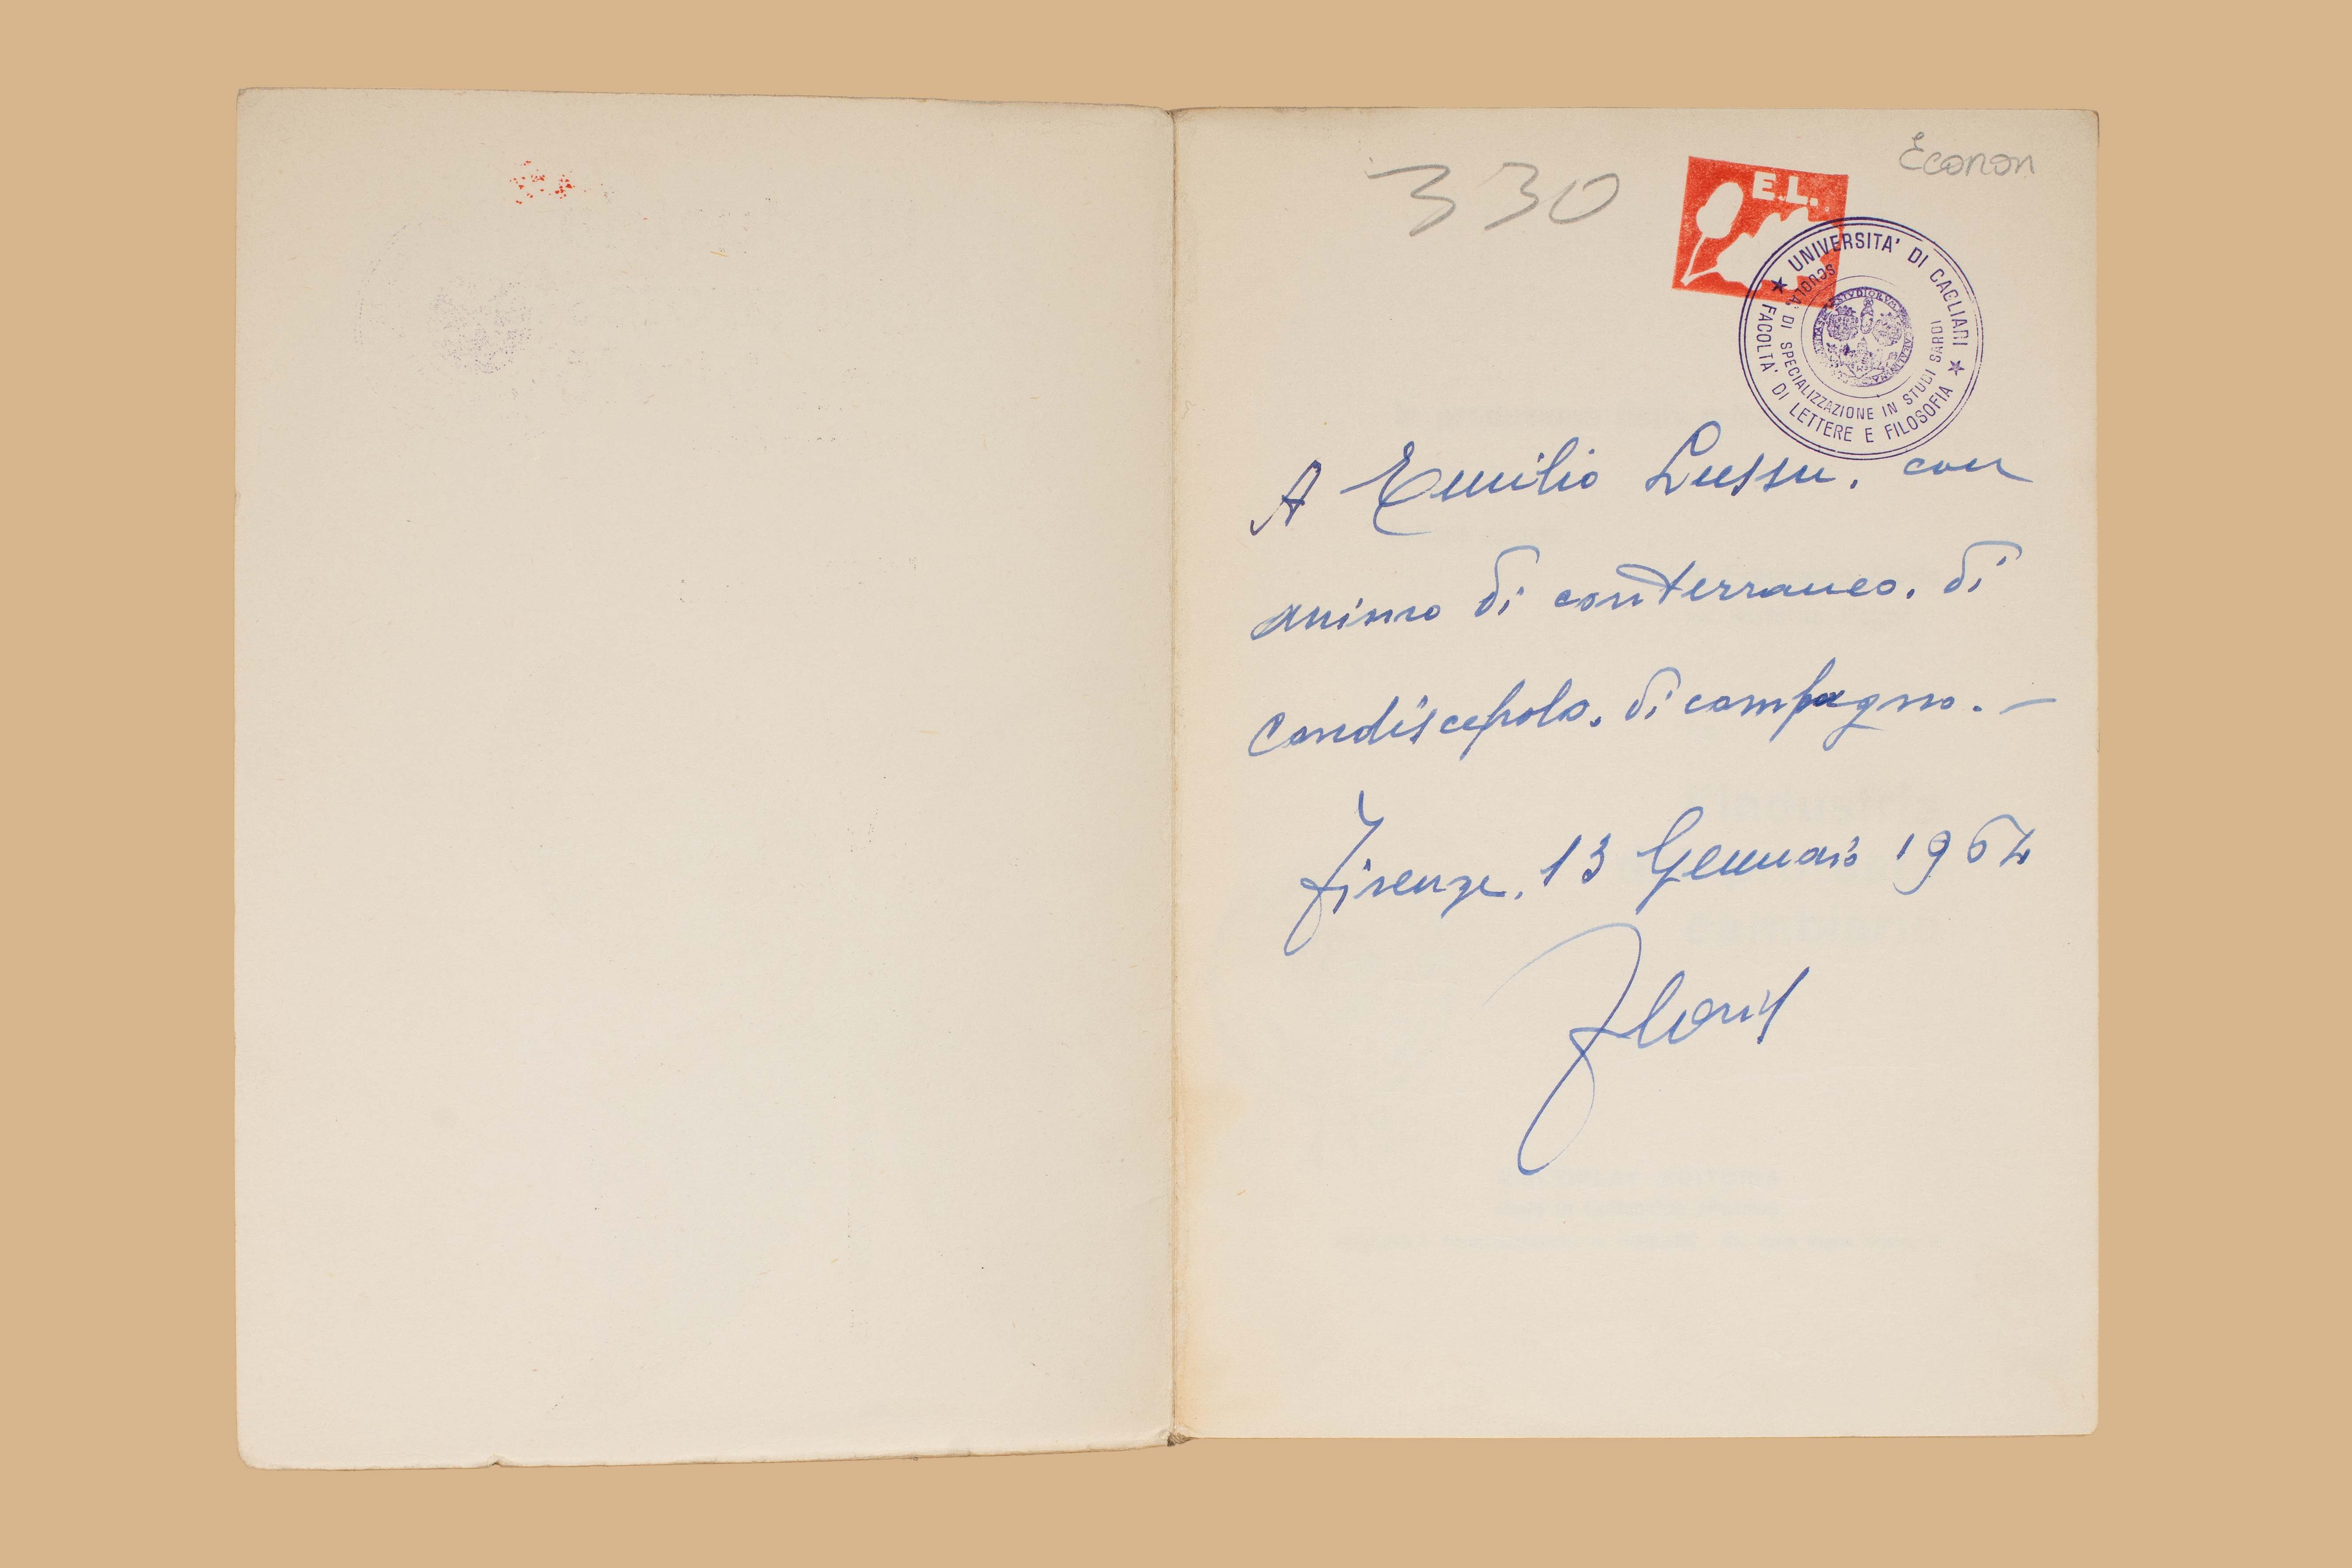 330
Econom
E.L.
★ UNIVERSITA' DI CAGLIARI ★
FACOLTA' DI LETTERE E FILOSOFIA
SCUOLA DI SPECIALIZZAZIONE IN STUDI SARDI
A Emilio Lussu, con
animo di conterraneo, di
condiscepolo, di compagno. —
Firenze, 13 Gennaio 1964
Floris